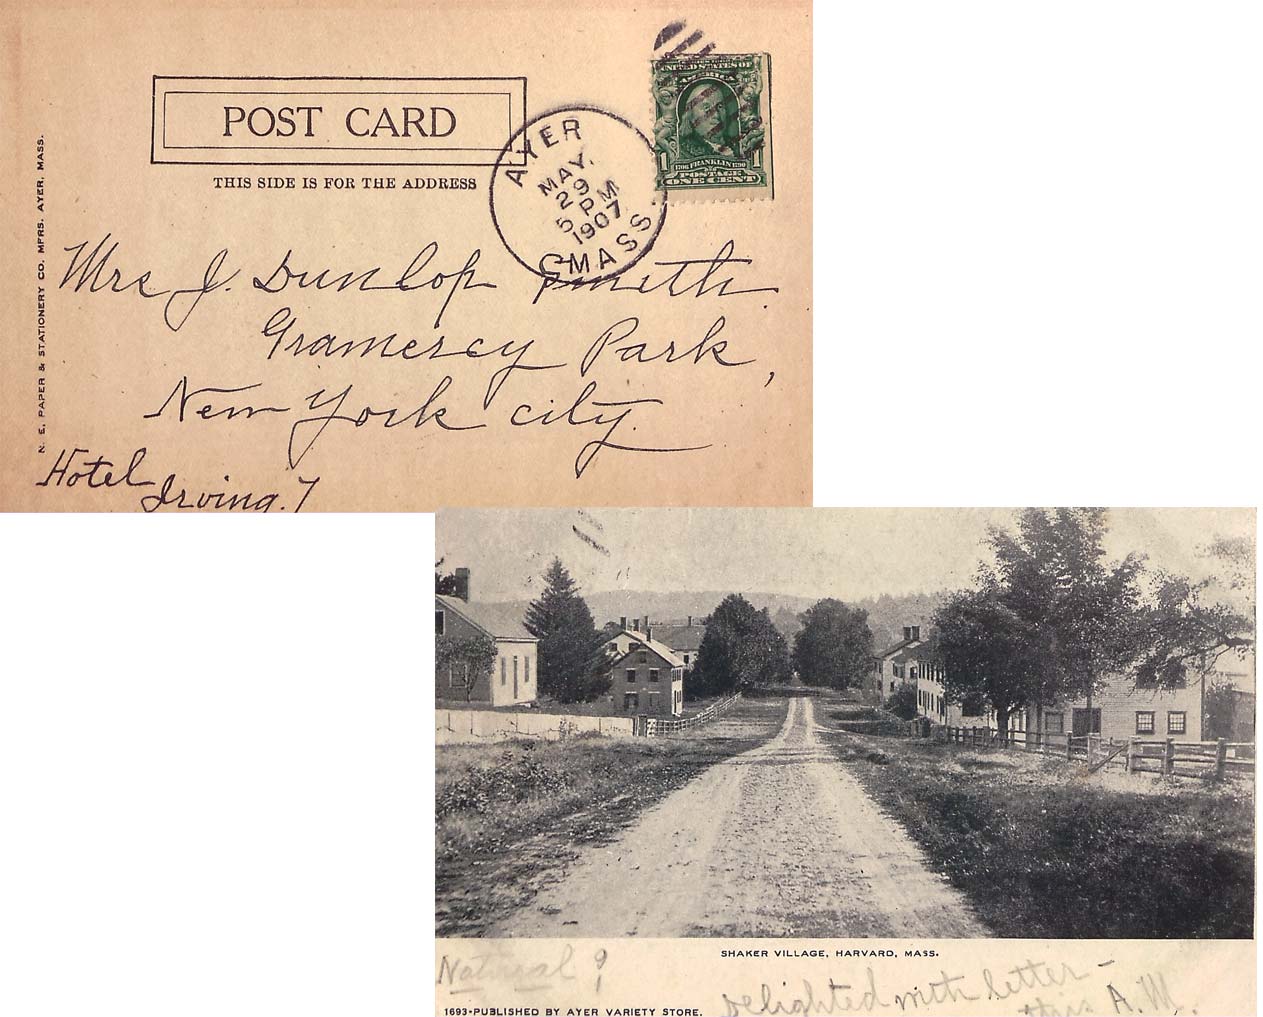 POST CARD
THIS SIDE IS FOR THE ADDRESS
N. E. PAPER & STATIONERY CO. MFRS. AYER, MASS.
AYER
MAY.
29
5 PM
1907
MASS.
UNITED STATES OF
AMERICA
1 1706 FRANKLIN 1790 1
POSTAGE
ONE CENT
Mrs J. Dunlop Smith.
Gramercy Park,
New York city.
Hotel
Irving.
SHAKER VILLAGE, HARVARD, MASS.
Natural?
Delighted with letter -
this A.M.
1693-PUBLISHED BY AYER VARIETY STORE.